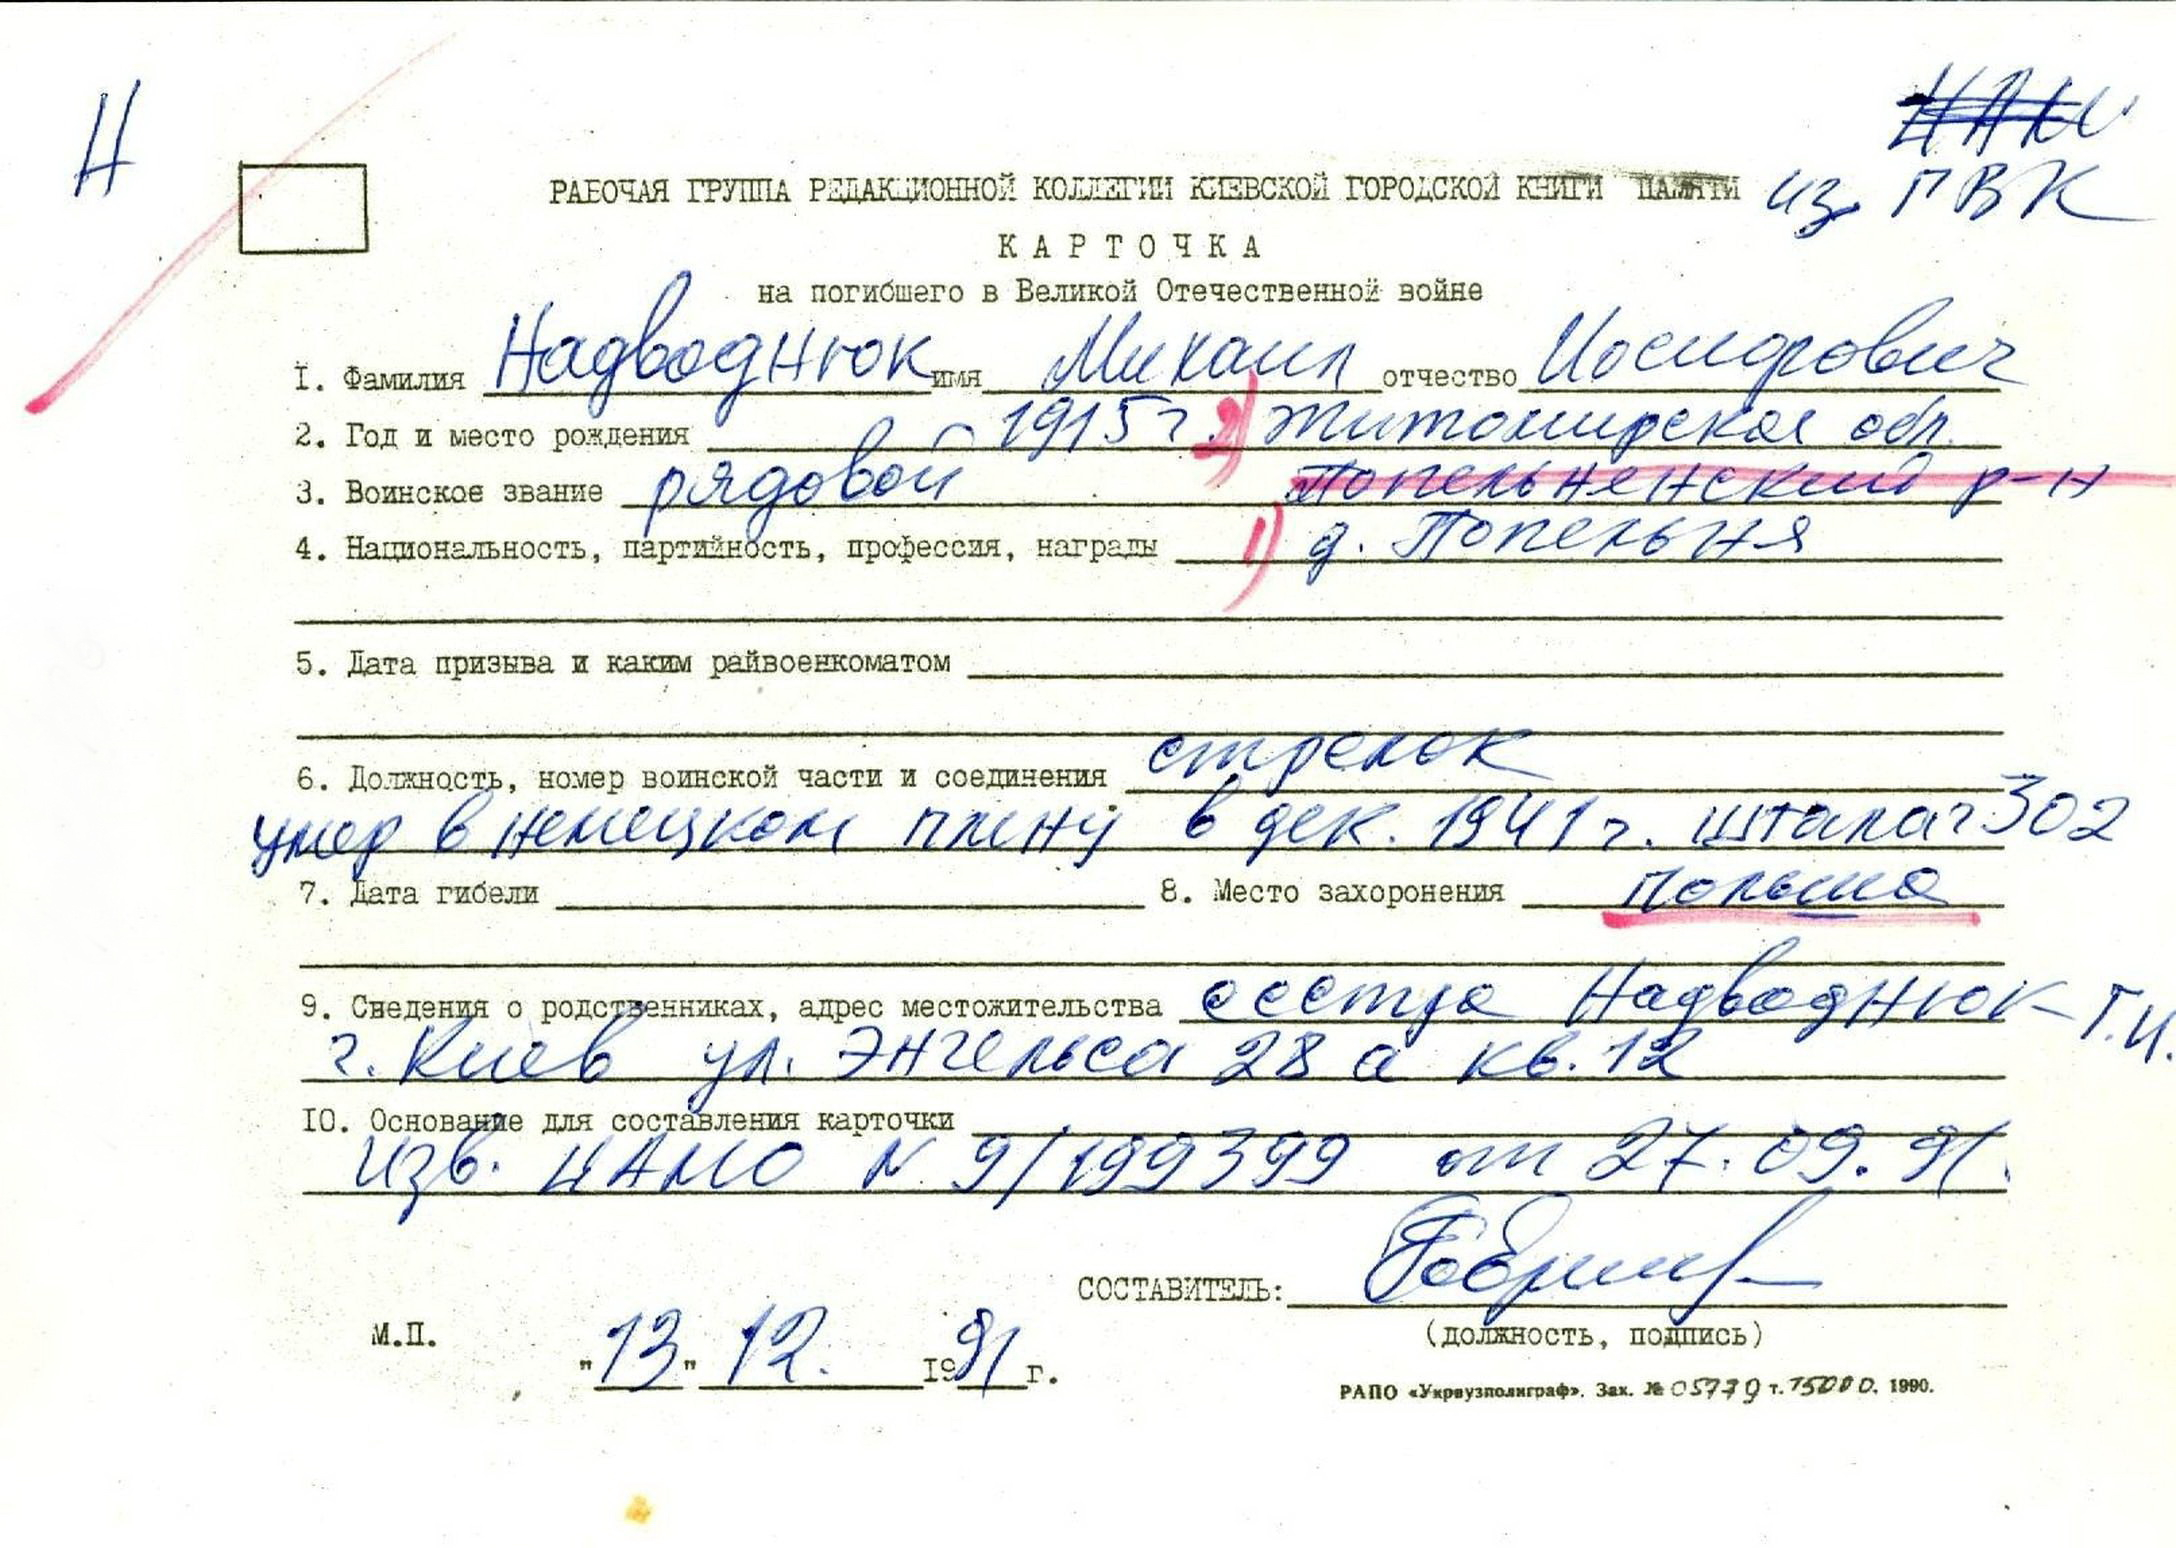 Н
из ГВК
РАБОЧАЯ ГРУППА РЕДАКЦИОННОЙ КОЛЛЕГИИ КИЕВСКОЙ ГОРОДСКОЙ КНИГИ ПАМЯТИ
КАРТОЧКА
на погибшего в Великой Отечественной войне
I. Фамилия Надводнюк имя Михаил отчество Иосифович
2. Год и место рождения 1915г. 2) Житомирская обл.
3. Воинское звание рядовой Попельнянский р-н
4. Национальность, партийность, профессия, награды 1) д. Попельня
5. Дата призыва и каким райвоенкоматом
6. Должность, номер воинской части и соединения стрелок
умер в немецком плену в дек. 1941г. шталаг 302
7. Дата гибели 8. Место захоронения Польша
9. Сведения о родственниках, адрес местожительства сестра Надводнюк Г.И.
г. Киев ул. Энгельса 28а кв. 12
IO. Основание для составления карточки
изв. ЦАМО N 9/199399 от 27.09.91.
СОСТАВИТЕЛЬ:
(должность, подпись)
М.П.
"13" 12. I991 г.
РАПО «Укрвузполиграф». Зак. № 05779 т. 15000. 1990.